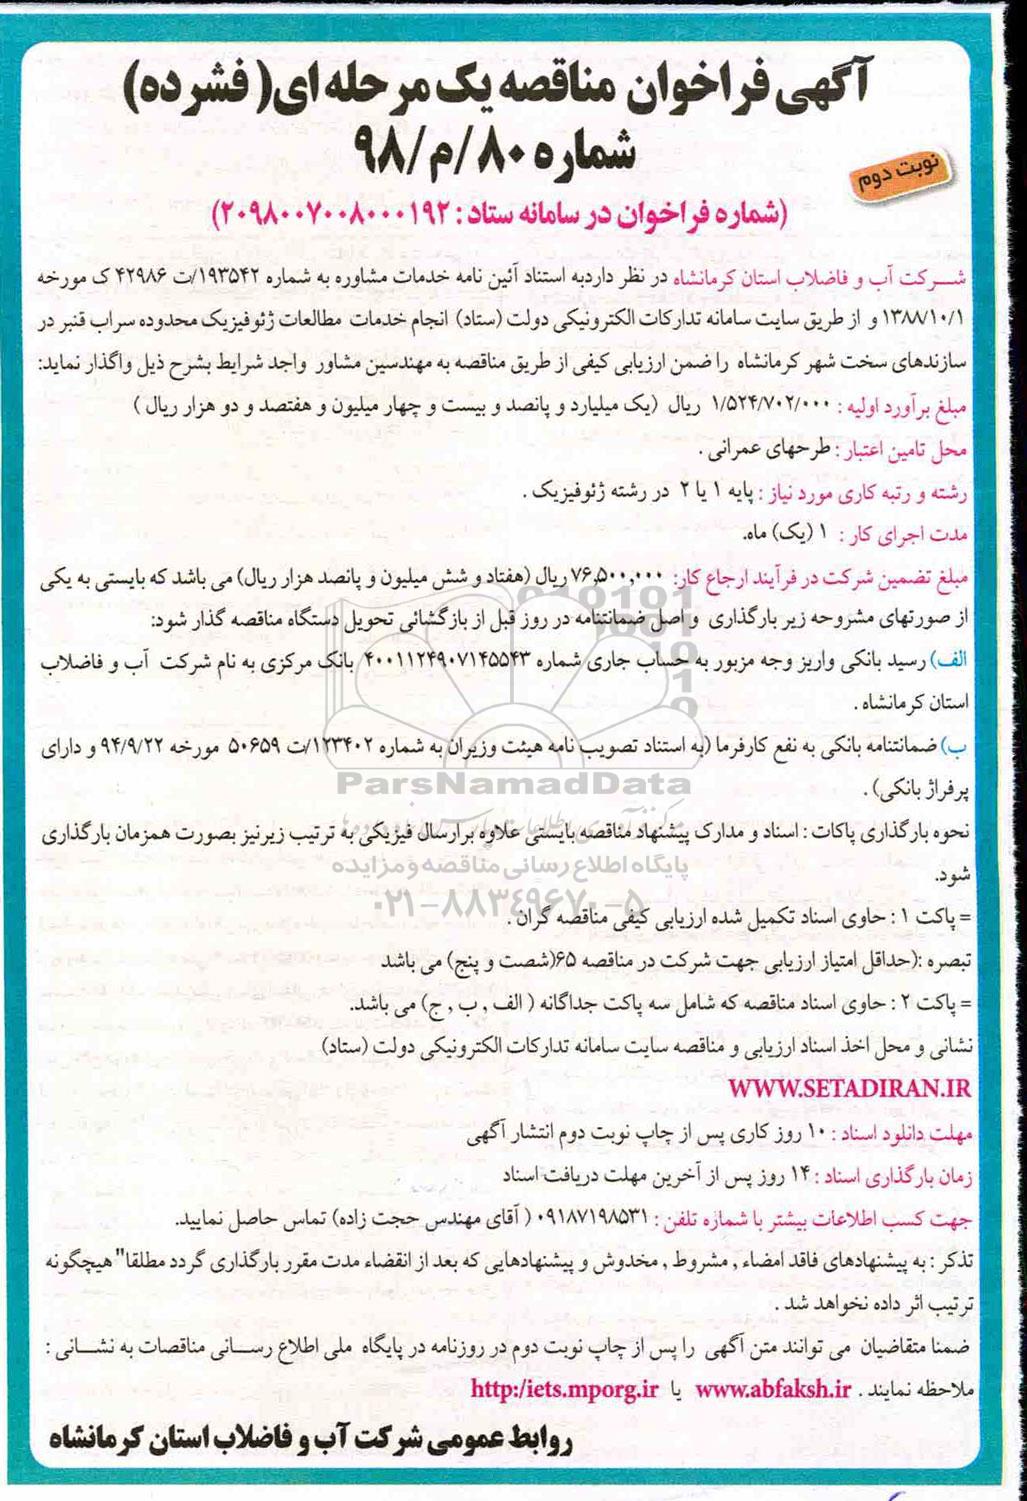 آگهی فراخوان مناقصه یک مرحله ای( فشرده)
شماره ۸۰/م/۹۸
نوبت دوم
(شماره فراخوان در سامانه ستاد : ۲۰۹۸۰۰۷۰۰۸۰۰۰۱۹۲)
شرکت آب و فاضلاب استان کرمانشاه در نظر داردبه استناد آئین نامه خدمات مشاوره به شماره ۱۹۳۵۴۲/ت ۴۲۹۸۶ ک مورخه
۱۳۸۸/۱۰/۱ و از طریق سایت سامانه تدارکات الکترونیکی دولت (ستاد) انجام خدمات مطالعات ژئوفیزیک محدوده سراب قنبر در
سازندهای سخت شهر کرمانشاه را ضمن ارزیابی کیفی از طریق مناقصه به مهندسین مشاور واجد شرایط بشرح ذیل واگذار نماید:
مبلغ برآورد اولیه : ۱/۵۲۴/۷۰۲/۰۰۰ ریال (یک میلیارد و پانصد و بیست و چهار میلیون و هفتصد و دو هزار ریال )
محل تامین اعتبار : طرحهای عمرانی .
رشته و رتبه کاری مورد نیاز : پایه ۱ یا ۲ در رشته ژئوفیزیک .
مدت اجرای کار : ۱ (یک) ماه.
مبلغ تضمین شرکت در فرآیند ارجاع کار: ۷۶,۵۰۰,۰۰۰ ریال (هفتاد و شش میلیون و پانصد هزار ریال) می باشد که بایستی به یکی
از صورتهای مشروحه زیر بارگذاری و اصل ضمانتنامه در روز قبل از بازگشائی تحویل دستگاه مناقصه گذار شود:
الف) رسید بانکی واریز وجه مزبور به حساب جاری شماره ۴۰۰۱۱۲۴۹۰۷۱۴۵۵۴۳ بانک مرکزی به نام شرکت آب و فاضلاب
استان کرمانشاه .
ب) ضمانتنامه بانکی به نفع کارفرما (به استناد تصویب نامه هیئت وزیران به شماره ۱۲۳۴۰۲/ت ۵۰۶۵۹ مورخه ۹۴/۹/۲۲ و دارای
ParsNamadData
پرفراژ بانکی) .
نحوه بارگذاری پاکات : اسناد و مدارک پیشنهاد مناقصه بایستی علاوه برارسال فیزیکی به ترتیب زیرنیز بصورت همزمان بارگذاری
پایگاه اطلاع رسانی مناقصه و مزایده
شود.
۰۲۱-۸۸۳۴۹۶۷۰-۵
= پاکت ۱ : حاوی اسناد تکمیل شده ارزیابی کیفی مناقصه گران .
تبصره :(حداقل امتیاز ارزیابی جهت شرکت در مناقصه ۶۵(شصت و پنج) می باشد
= پاکت ۲ : حاوی اسناد مناقصه که شامل سه پاکت جداگانه ( الف , ب , ج) می باشد.
نشانی و محل اخذ اسناد ارزیابی و مناقصه سایت سامانه تدارکات الکترونیکی دولت (ستاد)
WWW.SETADIRAN.IR
مهلت دانلود اسناد : ۱۰ روز کاری پس از چاپ نوبت دوم انتشار آگهی
زمان بارگذاری اسناد : ۱۴ روز پس از آخرین مهلت دریافت اسناد
جهت کسب اطلاعات بیشتر با شمازه تلفن : ۰۹۱۸۷۱۹۸۵۳۱ ( آقای مهندس حجت زاده) تماس حاصل نمایید.
تذکر : به پیشنهادهای فاقد امضاء , مشروط , مخدوش و پیشنهادهایی که بعد از انقضاء مدت مقرر بارگذاری گردد مطلقا" هیچگونه
ترتیب اثر داده نخواهد شد .
ضمنا متقاضیان می توانند متن آگهی را پس از چاپ نوبت دوم در روزنامه در پایگاه ملی اطلاع رسانی مناقصات به نشانی :
ملاحظه نمایند . www.abfaksh.ir یا http:/iets.mporg.ir
روابط عمومی شرکت آب و فاضلاب استان کرمانشاه